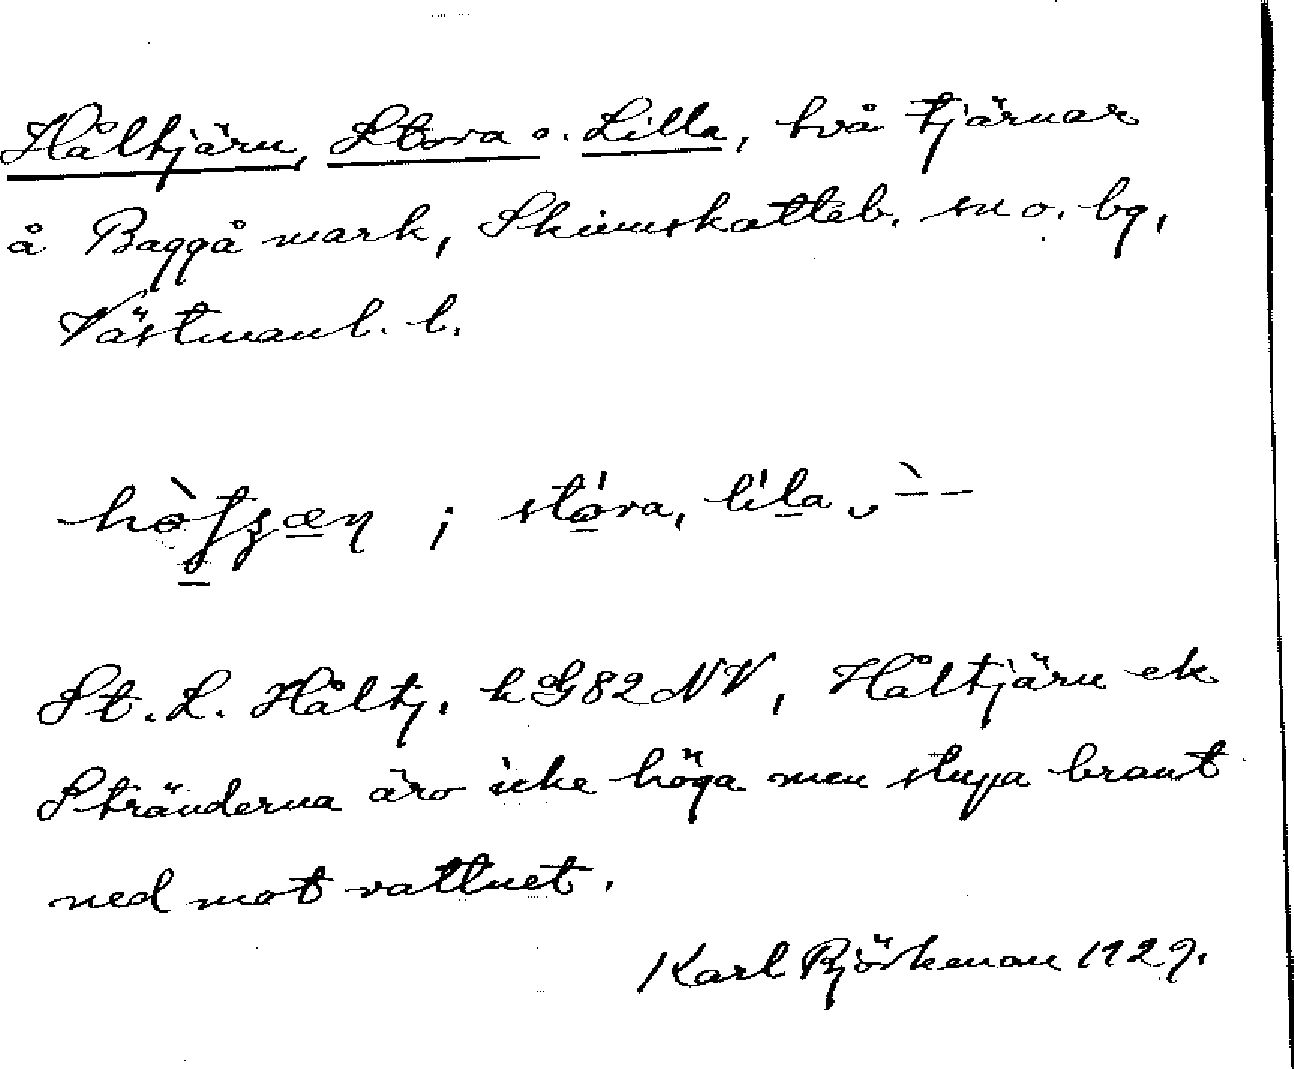 Håltjärn, Stora o. Lilla, två tjärnar
å Baggå mark, Skinnskatteb. sn o. bg,
Västmanl. l.
stóra, líla
St. L. Håltj. k G 82 NV, Håltjärn ek
Stränderna äro icke höga men stupa brant
ned mot vattnet.
Karl Björkman 1929.